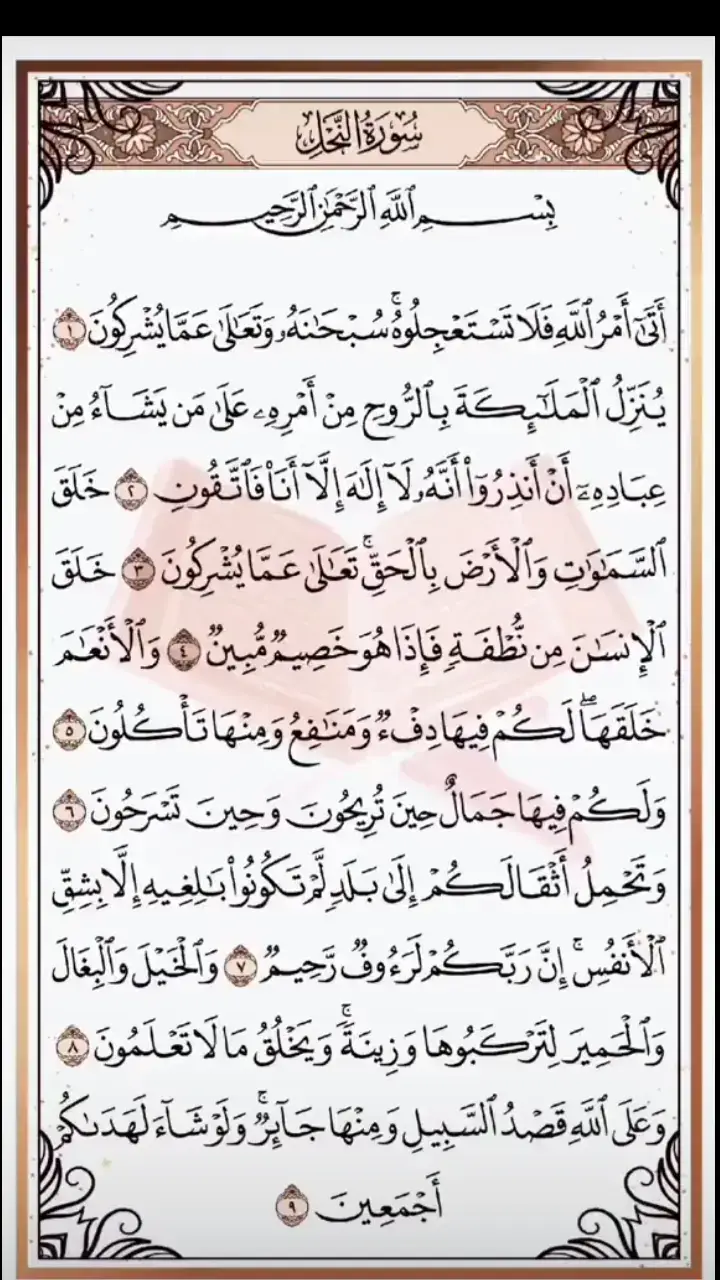 سُورَةُ النَّحْلِ
بِسْمِ ٱللَّهِ ٱلرَّحْمَٰنِ ٱلرَّحِيمِ
أَتَىٰٓ أَمْرُ ٱللَّهِ فَلَا تَسْتَعْجِلُوهُۚ سُبْحَٰنَهُۥ وَتَعَٰلَىٰ عَمَّا يُشْرِكُونَ ١
يُنَزِّلُ ٱلْمَلَٰٓئِكَةَ بِٱلرُّوحِ مِنْ أَمْرِهِۦ عَلَىٰ مَن يَشَآءُ مِنْ
عِبَادِهِۦٓ أَنْ أَنذِرُوٓا۟ أَنَّهُۥ لَآ إِلَٰهَ إِلَّآ أَنَا۠ فَٱتَّقُونِ ٢ خَلَقَ
ٱلسَّمَٰوَٰتِ وَٱلْأَرْضَ بِٱلْحَقِّۚ تَعَٰلَىٰ عَمَّا يُشْرِكُونَ ٣ خَلَقَ
ٱلْإِنسَٰنَ مِن نُّطْفَةٍ فَإِذَا هُوَ خَصِيمٌ مُّبِينٌ ٤ وَٱلْأَنْعَٰمَ
خَلَقَهَاۖ لَكُمْ فِيهَا دِفْءٌ وَمَنَٰفِعُ وَمِنْهَا تَأْكُلُونَ ٥
وَلَكُمْ فِيهَا جَمَالٌ حِينَ تُرِيحُونَ وَحِينَ تَسْرَحُونَ ٦
وَتَحْمِلُ أَثْقَالَكُمْ إِلَىٰ بَلَدٍ لَّمْ تَكُونُوا۟ بَٰلِغِيهِ إِلَّا بِشِقِّ
ٱلْأَنفُسِۚ إِنَّ رَبَّكُمْ لَرَءُوفٌ رَّحِيمٌ ٧ وَٱلْخَيْلَ وَٱلْبِغَالَ
وَٱلْحَمِيرَ لِتَرْكَبُوهَا وَزِينَةًۚ وَيَخْلُقُ مَا لَا تَعْلَمُونَ ٨
وَعَلَى ٱللَّهِ قَصْدُ ٱلسَّبِيلِ وَمِنْهَا جَآئِرٌۚ وَلَوْ شَآءَ لَهَدَىٰكُمْ
أَجْمَعِينَ ٩